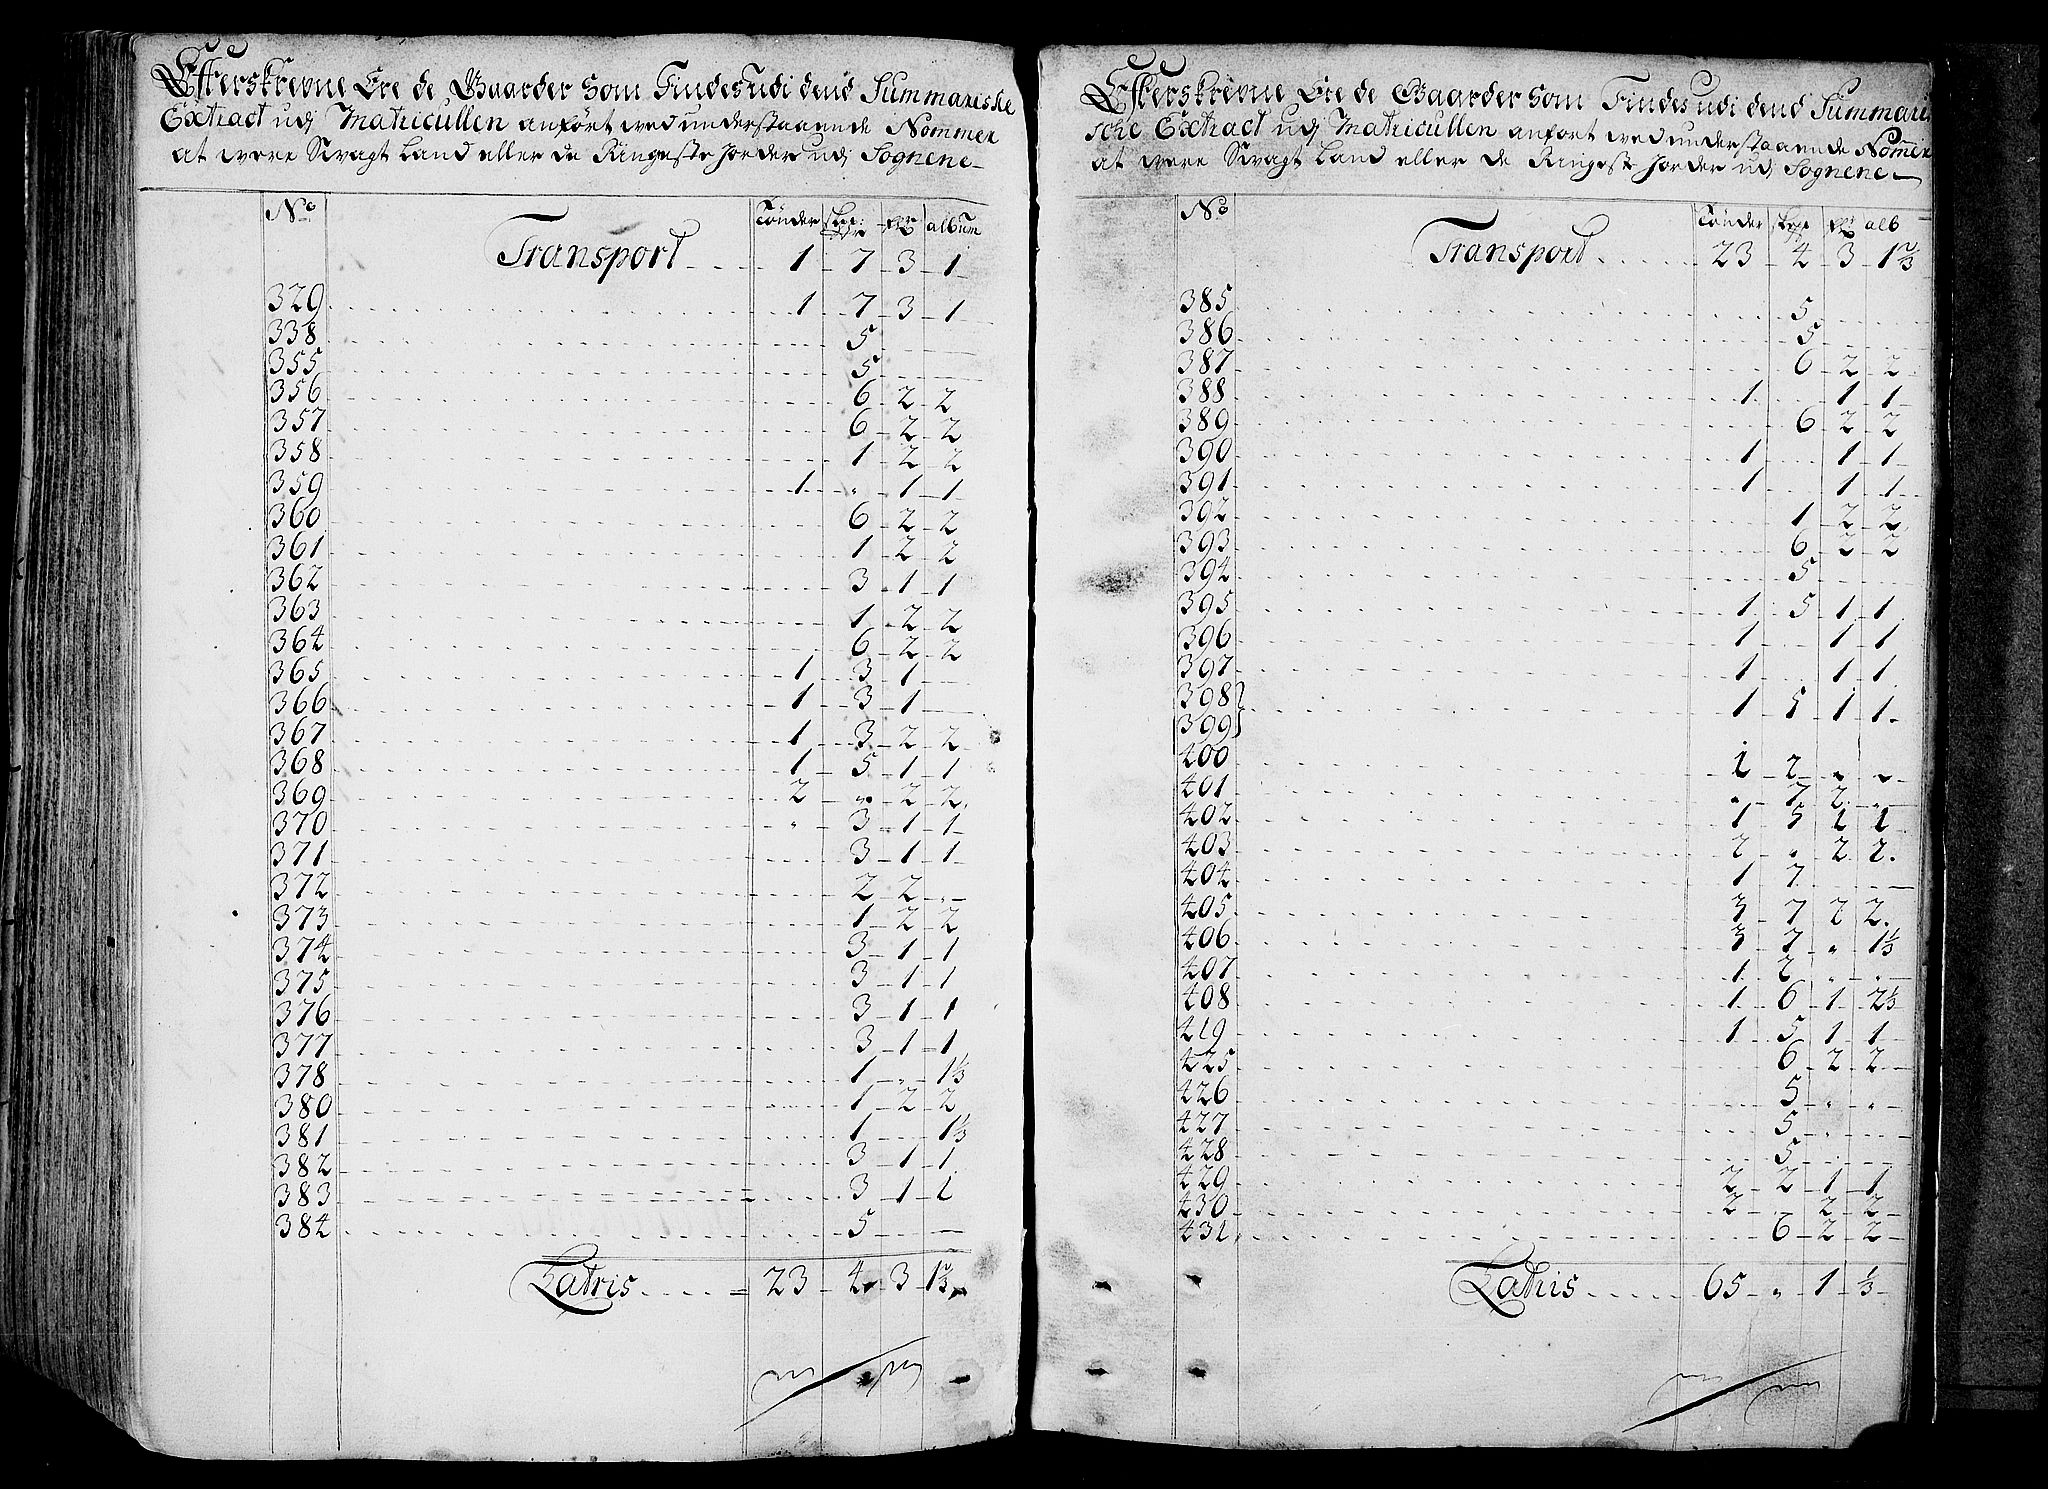 Efterskrevne Ere de Gaarder som Findes udi dend Summariske
Extract udj Matricullen anfört ved understaaende Nommer
at were Svagt Land eller de Ringeste Jorder udj Sognene
No Tönder skp: fr album
Transport 1 7 3 1
329 1 7 3 1
338 5
355 5
356 6 2 2
357 6 2 2
358 1 2 2
359 1 " 1 1
360 6 2 2
361 1 2 2
362 3 1 1
363 1 2 2
364 6 2 2
365 1 3 1
366 1 3 1
367 1 3 2 2
368 1 5 1 1
369 2 " 2 2
370 " 3 1 1
371 3 1 1
372 2 2 "
373 1 2 2
374 3 1 1
375 3 1 1
376 3 1 1
377 3 1 1
378 1 " 1⅓
380 1 2 2
381 1 1⅓
382 3 1 1
383 3 1 1
384 5
Latris 23 4 3 1⅔
Efterskrevne Ere de Gaarder som Findes udi dend Summari
sche Extract udj Matricullen anfört ved understaaende Nommer
at were Svagt Land eller de Ringeste Jorder udj Sognene
No Tönder skp fr alb
Transport 23 4 3 1⅔
385 5
386 5
387 6 2 2
388 1 1 1
389 6 2 2
390 1 1 1
391 1 1 1
392 1 2 2
393 6 2 2
394 5
395 1 5 1 1
396 1 1 1
397 1 1 1
398}
399} 1 5 1 1
400 1 2 " "
401 " 7 2 "
402 1 5 1 1
403 2 " 2 2
404 1 7
405 3 7 2 2
406 3 7 " 1⅓
407 1 2 " "
408 1 6 1 2⅓
419 1 5 1 1
425 6 2 2
426 5 " "
427 5 "
428 5
429 2 2 1 1
430 2 2 2
431 6 2 2
Lathis 65 " 1 ⅓